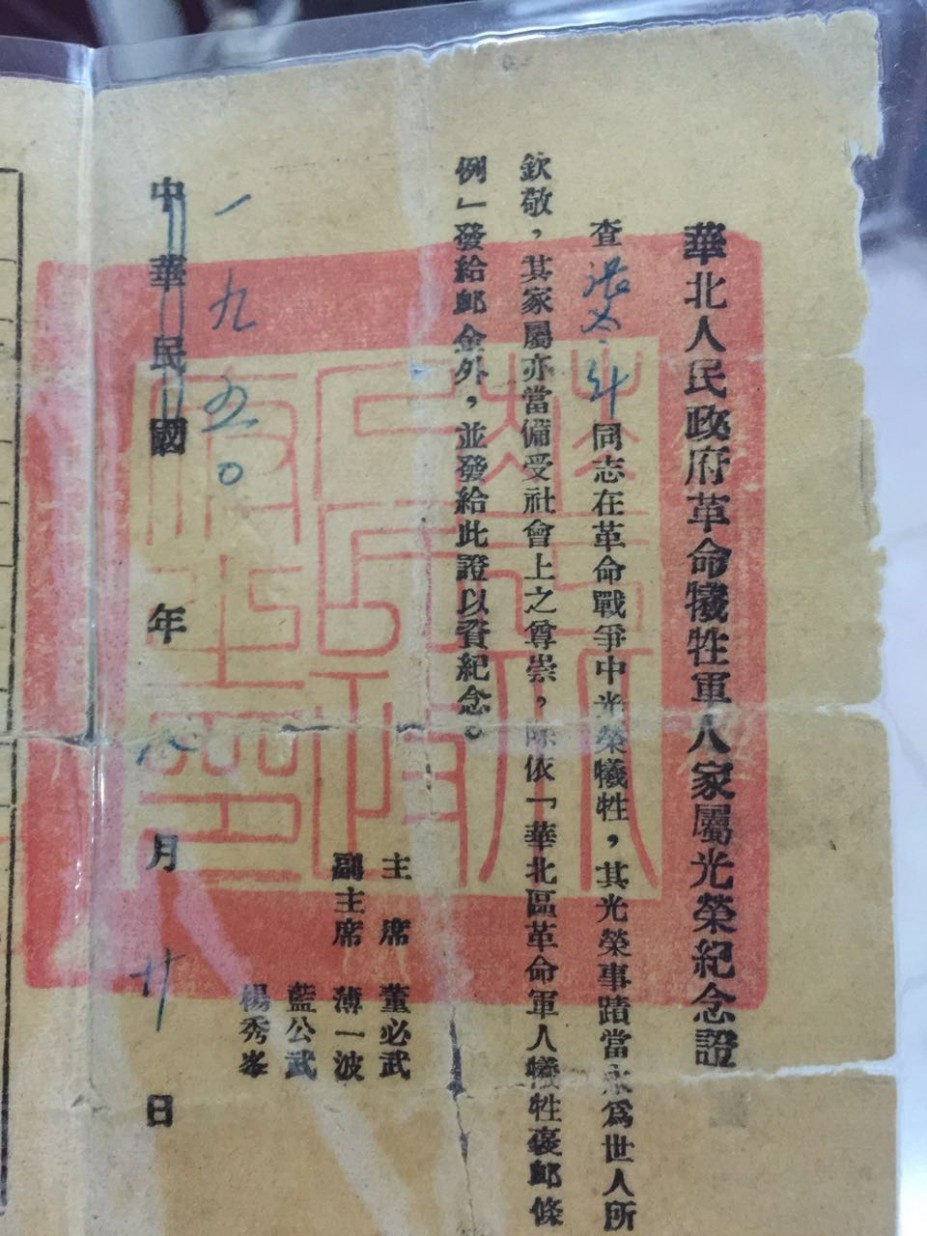 華北人民政府革命犧牲軍人家屬光榮紀念證
查 同志在革命戰爭中光榮犧牲，其光榮事蹟當永為世人所
欽敬，其家屬亦當備受社會上之尊崇，除依「華北區革命軍人犧牲褒卹條
例」發給卹金外，並發給此證以資紀念。
主席 董必武
副主席 薄一波
藍公武
楊秀峯
一九五〇
中華民國 年 月廿日